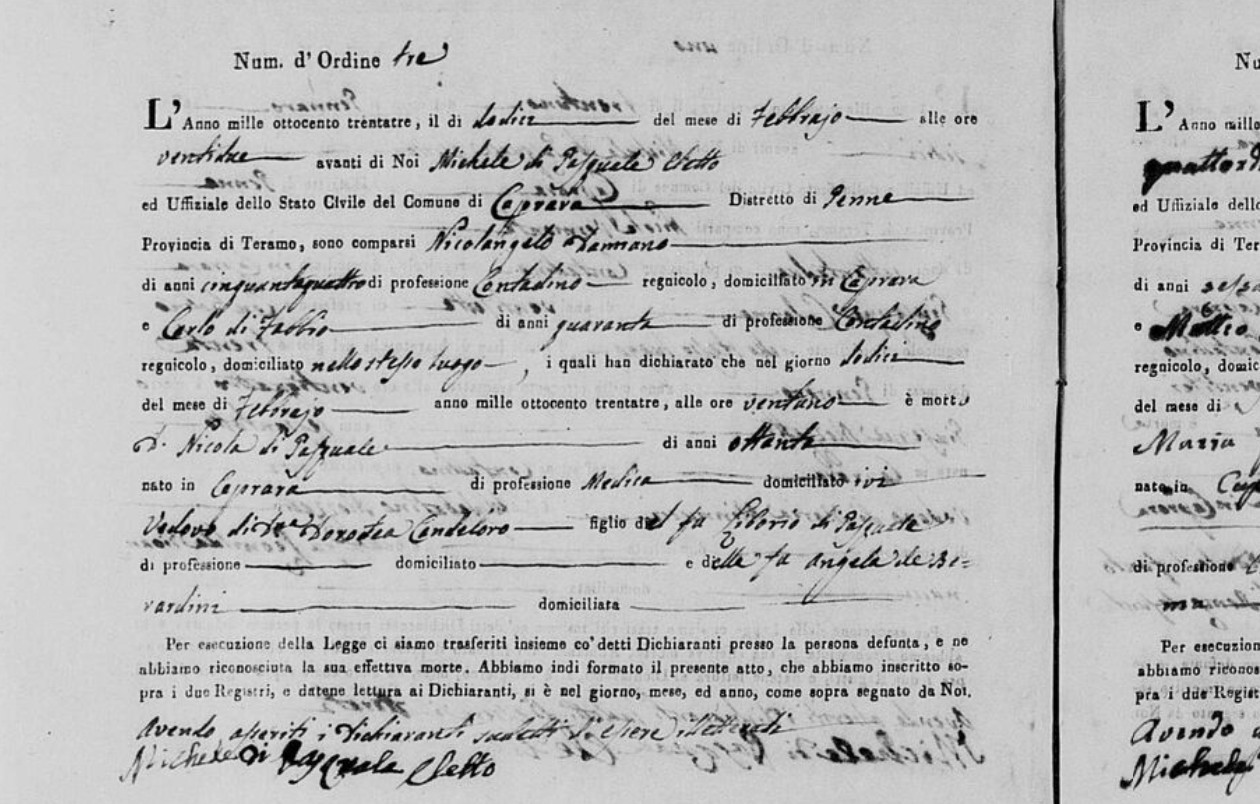 Num. d'Ordine tre
L'Anno mille ottocento trentatre, il di dodici del mese di Febbrajo alle ore
ventidue avanti di Noi Michele di Pasquale Eletto
ed Uffiziale dello Stato Civile del Comune di Caprara Distretto di Penne
Provincia di Teramo, sono comparsi Nicolangelo Damiano
di anni cinquantaquattro di professione Contadino regnicolo, domiciliato in Caprara
e Carlo di Fabbio di anni quaranta di professione Contadino
regnicolo, domiciliato nello stesso luogo, i quali han dichiarato che nel giorno dodici
del mese di Febbrajo anno mille ottocento trentatre, alle ore ventuno è morto
D. Nicola di Pasquale di anni ottanta
nato in Caprara di professione Medico domiciliato ivi
Vedovo di D.a Dorotea Candeloro figlio del fu Liborio di Pasquale
di professione domiciliato e della fu Angela de Be=
rardini domiciliata
Per esecuzione della Legge ci siamo trasferiti insieme co' detti Dichiaranti presso la persona defunta, e ne
abbiamo riconosciuta la sua effettiva morte. Abbiamo indi formato il presente atto, che abbiamo inscritto so-
pra i due Registri, e datone lettura ai Dichiaranti, si è nel giorno, mese, ed anno, come sopra segnato da Noi.
Avendo asseriti i dichiaranti suddetti d'essere illetterati
Michele Di Pasquale Eletto
Nu
L'Anno mille
ed Uffiziale dello
Provincia di Ter
di anni
e Matteo
regnicolo, domic
del mese di
Maria
nato in
di professione
Per esecuzion
abbiamo riconos
pra i due Regist
Avendo a
Michele